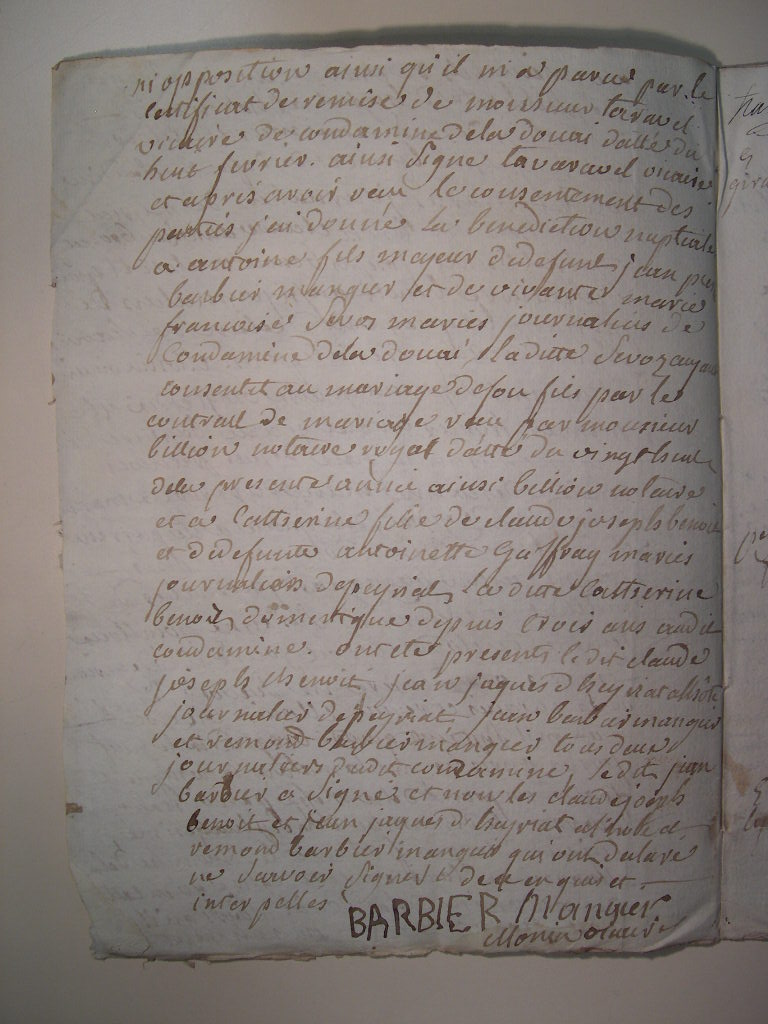 ni opposition ainsi qu'il m'a paru par le
certificat de remise de monsieur taravel
vicaire de condamine de la douai datté du
huit fevrier. ainsi signe taravel vicaire
et apris avoir veu le consentement des
partis j'ai donné la benediction nuptiale
a antoine fils majeur de defunt jean
barbier mangier et de vivante marie
francoise Sevoz maries journaliers de
Condamine de la douai, la ditte Sevoz ayant
consentit au mariage de son fils par le
contrait de mariage veu par monsieur
billion notaire royal datté du vingt huit
de la presente année ainsi billion notaire
et a Catherine fille de claude joseph benoit
et de defunte antoinette Gaffray maries
journaliers de peyriat, la ditte Catherine
benoit domestique depuis trois ans audit
condamine. ont ete presents le dit claude
joseph benoit jean jaques d heyriat
journalier de peyriat jean barbier mangier
et remond barbier mangier tous deux
journaliers dudit condamine, le dit jean
barbier a signé et non les claude joseph
benoit et jean jaques d heyriat et
remond barbier mangier qui ont declaré
ne savoir signer de ce enquis et
interpelles
BARBIER Mangier